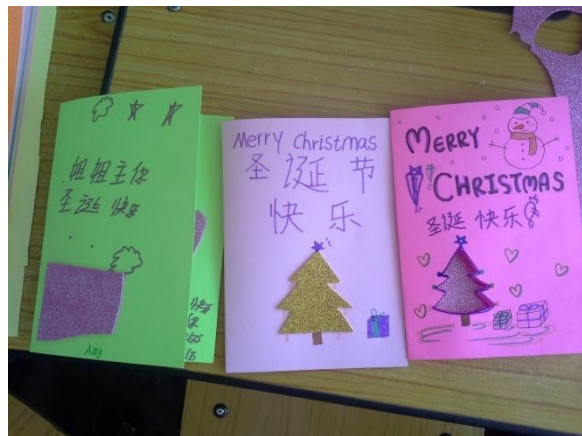 姐姐主你
圣诞快乐
Amy
Merry Christmas
圣诞节
快乐
MERRY
CHRISTMAS
圣诞快乐